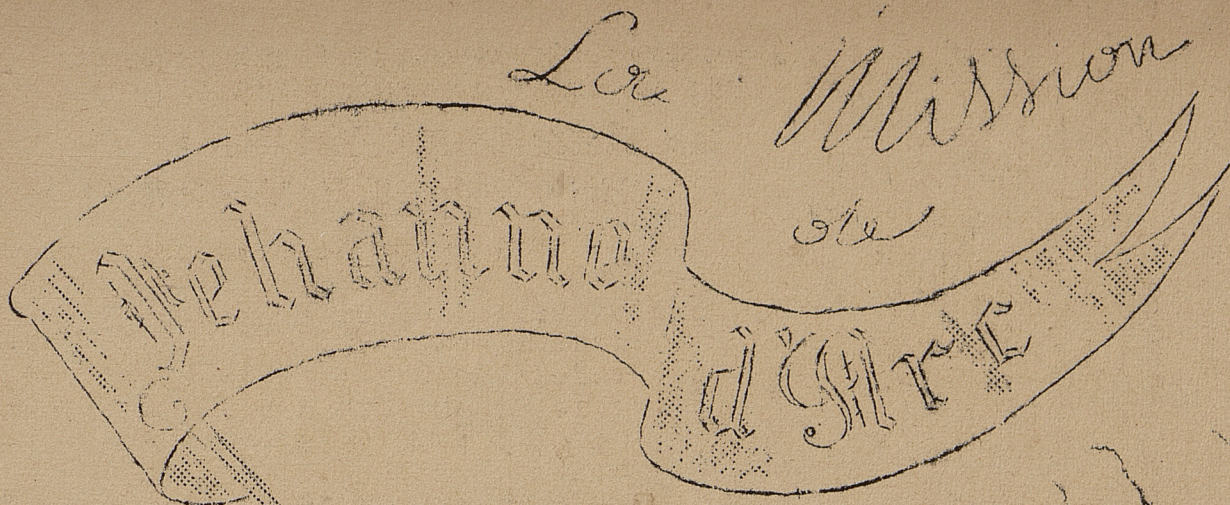 La Mission
de
Jehanne
d'Arc